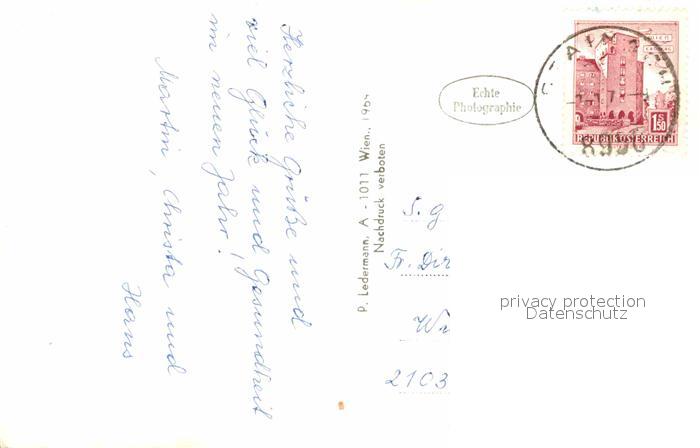 Herzliche Grüße und
viel Glück und Gesundheit
im neuen Jahr!
Martin, Christa und
Hans
P. Ledermann, A - 1011 Wien,
Nachdruck verboten
Echte
Photographie
S. g
Fr. Dir
2103
1.50 S
REPUBLIK ÖSTERREICH
privacy protection
Datenschutz